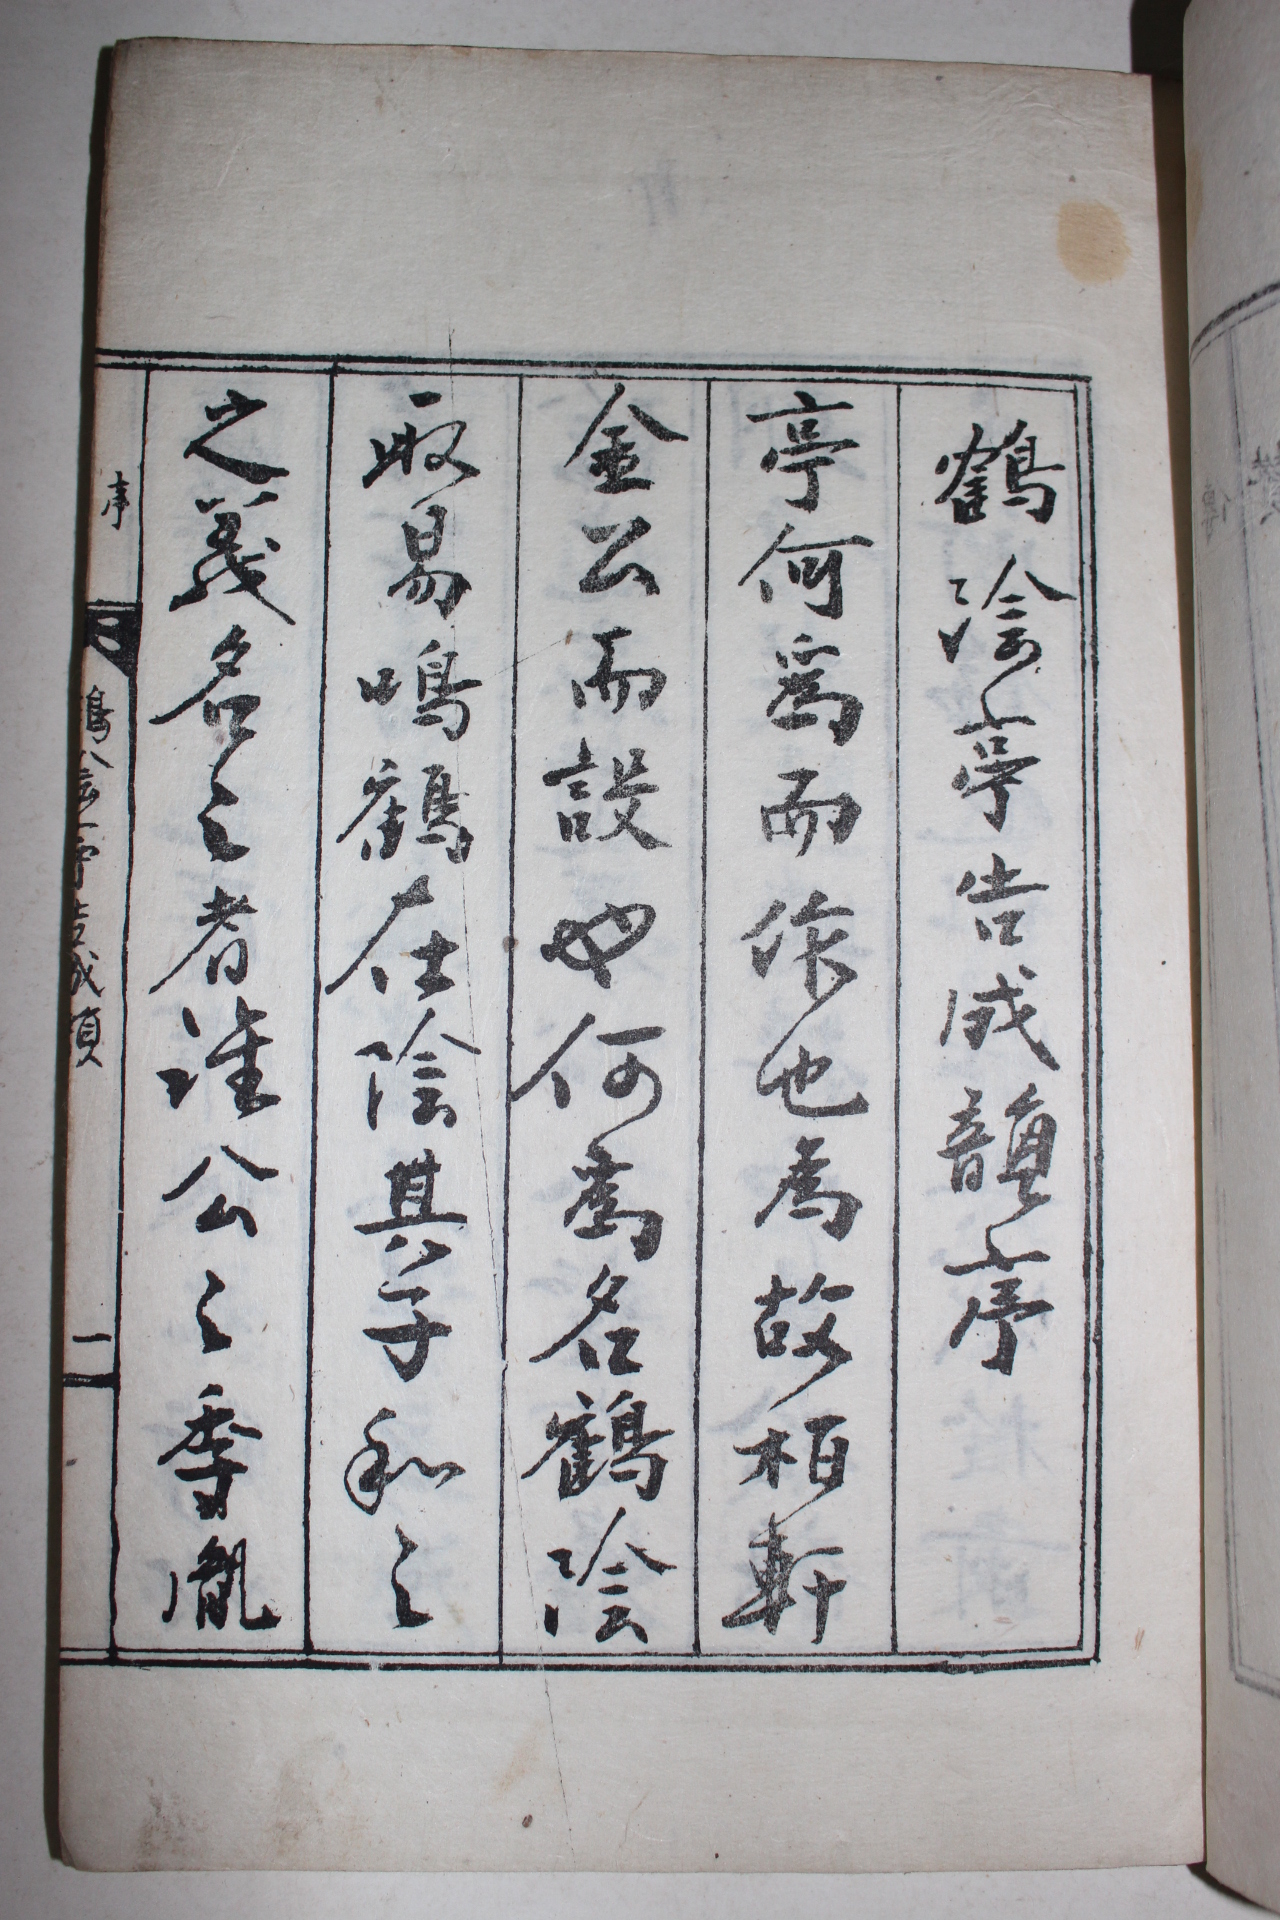 鶴陰亭告成韻序
亭何爲而作也為故栢軒
金公而設也何爲名鶴陰
取易鳴鶴在陰其子和之
之義名之者誰公之季胤
序
鶴陰亭告成韻
一